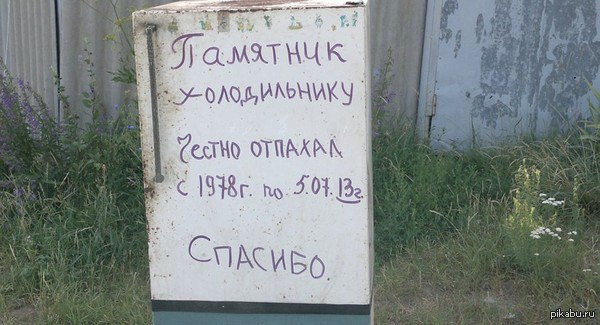 Памятник
холодильнику
Честно отпахал
с 1978г. по 5.07.13г.
Спасибо.
pikabu.ru